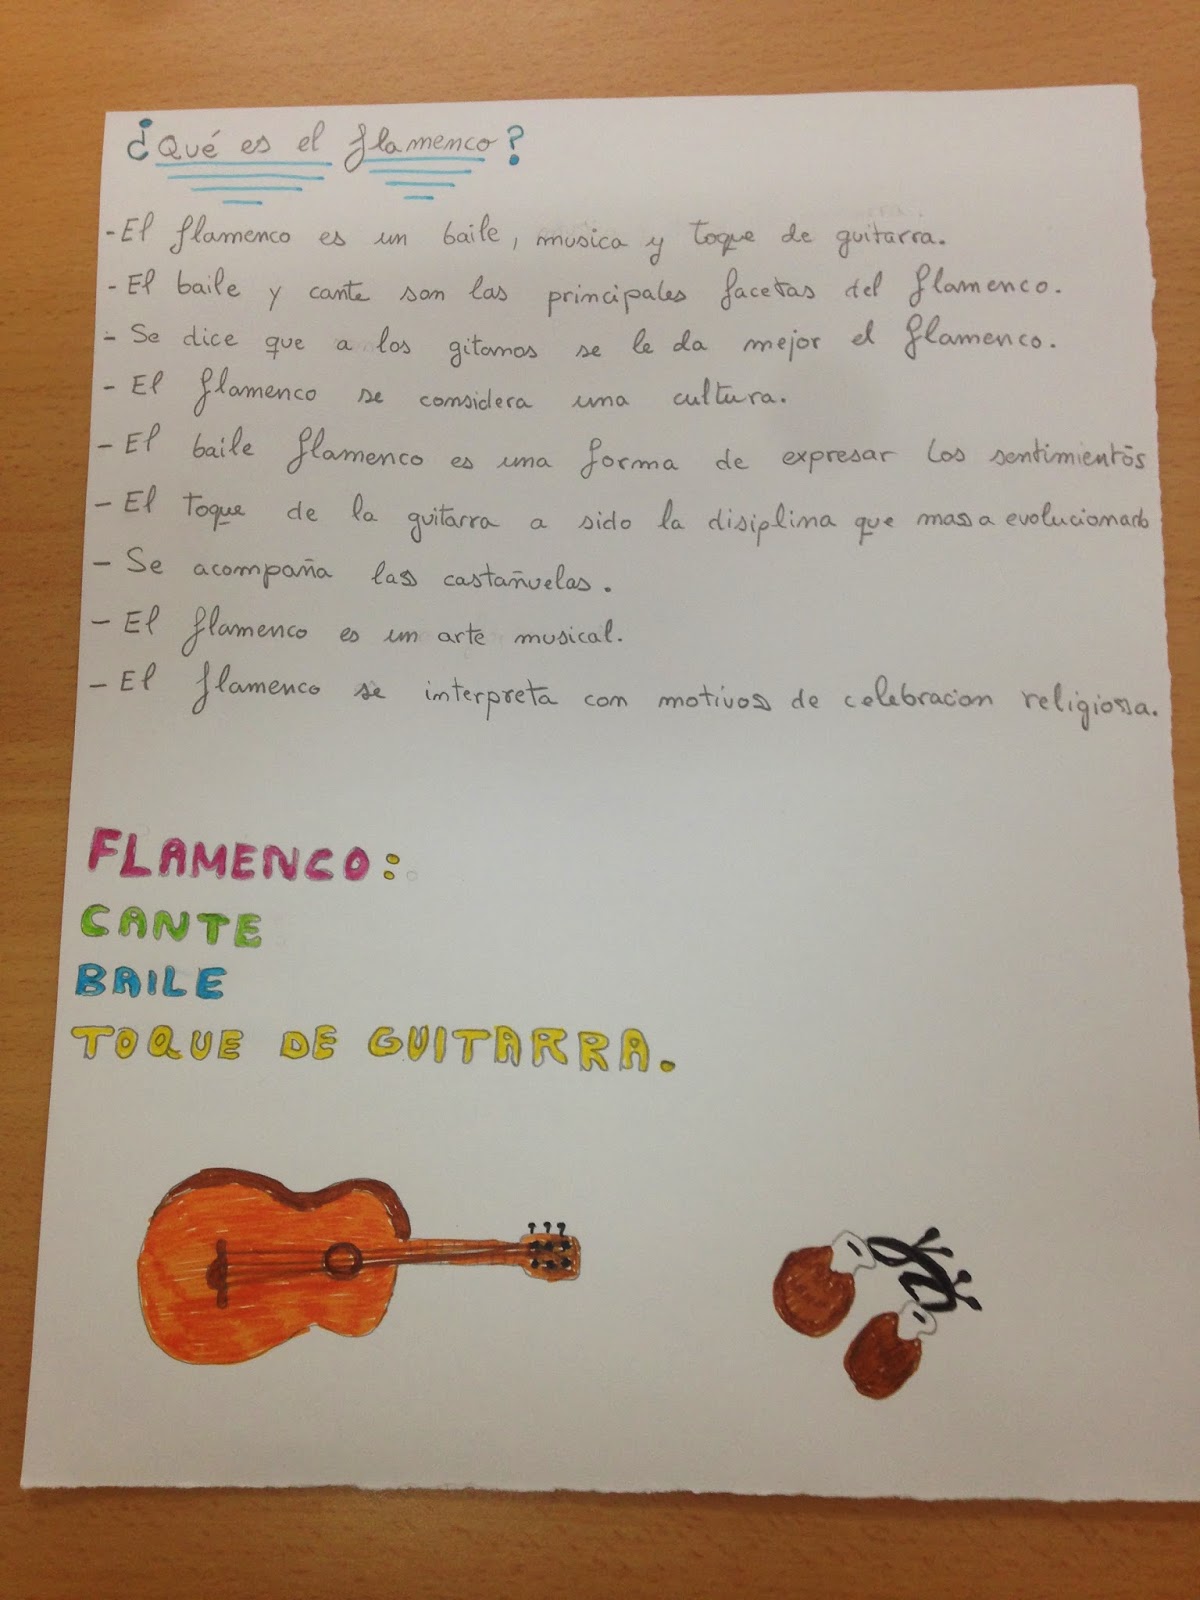 ¿Qué es el flamenco?
- El flamenco es un baile, musica y toque de guitarra.
- El baile y cante son las principales facetas del flamenco.
- Se dice que a los gitanos se le da mejor el flamenco.
- El flamenco se considera una cultura.
- El baile flamenco es una forma de expresar los sentimientos
- El toque de la guitarra a sido la disiplina que mas a evolucionado
- Se acompaña las castañuelas.
- El flamenco es un arte musical.
- El flamenco se interpreta con motivos de celebracion religiosa.
FLAMENCO:
CANTE
BAILE
TOQUE DE GUITARRA.